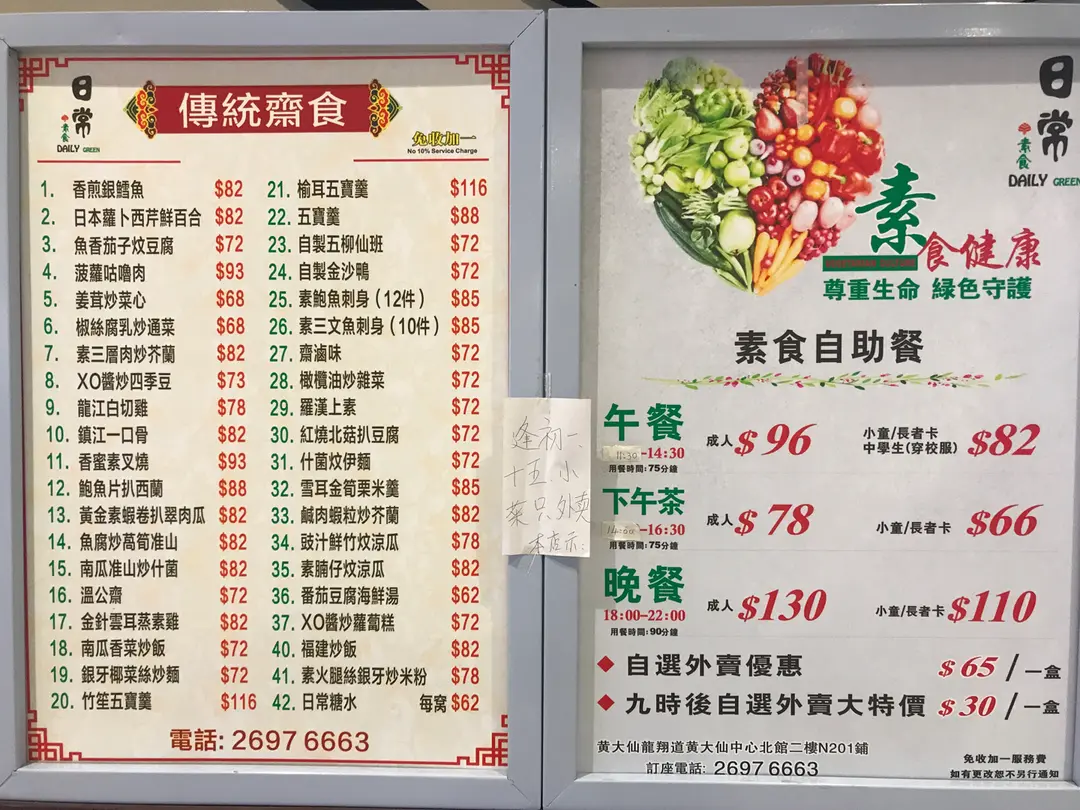 日常
素食
DAILY GREEN
傳統齋食
免收加一
No 10% Service Charge
1. 香煎銀鱈魚 $82
2. 日本蘿卜西芹鮮百合 $82
3. 魚香茄子炆豆腐 $72
4. 菠蘿咕嚕肉 $93
5. 姜茸炒菜心 $68
6. 椒絲腐乳炒通菜 $68
7. 素三層肉炒芥蘭 $82
8. XO醬炒四季豆 $73
9. 龍江白切雞 $78
10. 鎮江一口骨 $82
11. 香蜜素叉燒 $93
12. 鮑魚片扒西蘭 $88
13. 黃金素蝦卷扒翠肉瓜 $82
14. 魚腐炒萵筍准山 $82
15. 南瓜准山炒什菌 $82
16. 溫公齋 $72
17. 金針雲耳蒸素雞 $82
18. 南瓜香菜炒飯 $72
19. 銀牙椰菜絲炒麵 $72
20. 竹笙五寶羹 $116
21. 榆耳五寶羹 $116
22. 五寶羹 $88
23. 自製五柳仙班 $72
24. 自製金沙鴨 $72
25. 素鮑魚刺身（12件） $85
26. 素三文魚刺身（10件） $85
27. 齋滷味 $72
28. 橄欖油炒雜菜 $72
29. 羅漢上素 $72
30. 紅燒北菇扒豆腐 $72
31. 什菌炆伊麵 $72
32. 雪耳金筍栗米羹 $85
33. 鹹肉蝦粒炒芥蘭 $82
34. 豉汁鮮竹炆涼瓜 $78
35. 素腩仔炆涼瓜 $82
36. 番茄豆腐海鮮湯 $62
37. XO醬炒蘿蔔糕 $72
40. 福建炒飯 $82
41. 素火腿絲銀牙炒米粉 $78
42. 日常糖水 每窝 $62
電話: 2697 6663
逢初一、
十五.小
菜只外卖
本店示:
日常
素食
DAILY GREEN
素食健康
尊重生命 綠色守護
素食自助餐
午餐 成人 $96 小童/長者卡 中學生(穿校服) $82
11:30-14:30
用餐時間:75分鐘
下午茶 成人 $78 小童/長者卡 $66
-16:30
用餐時間:75分鐘
晚餐 成人 $130 小童/長者卡 $110
18:00-22:00
用餐時間:90分鐘
自選外賣優惠 $65/一盒
九時後自選外賣大特價 $30/一盒
黄大仙龍翔道黄大仙中心北館二樓N201鋪
訂座電話: 2697 6663
免收加一服務費
如有更改恕不另行通知